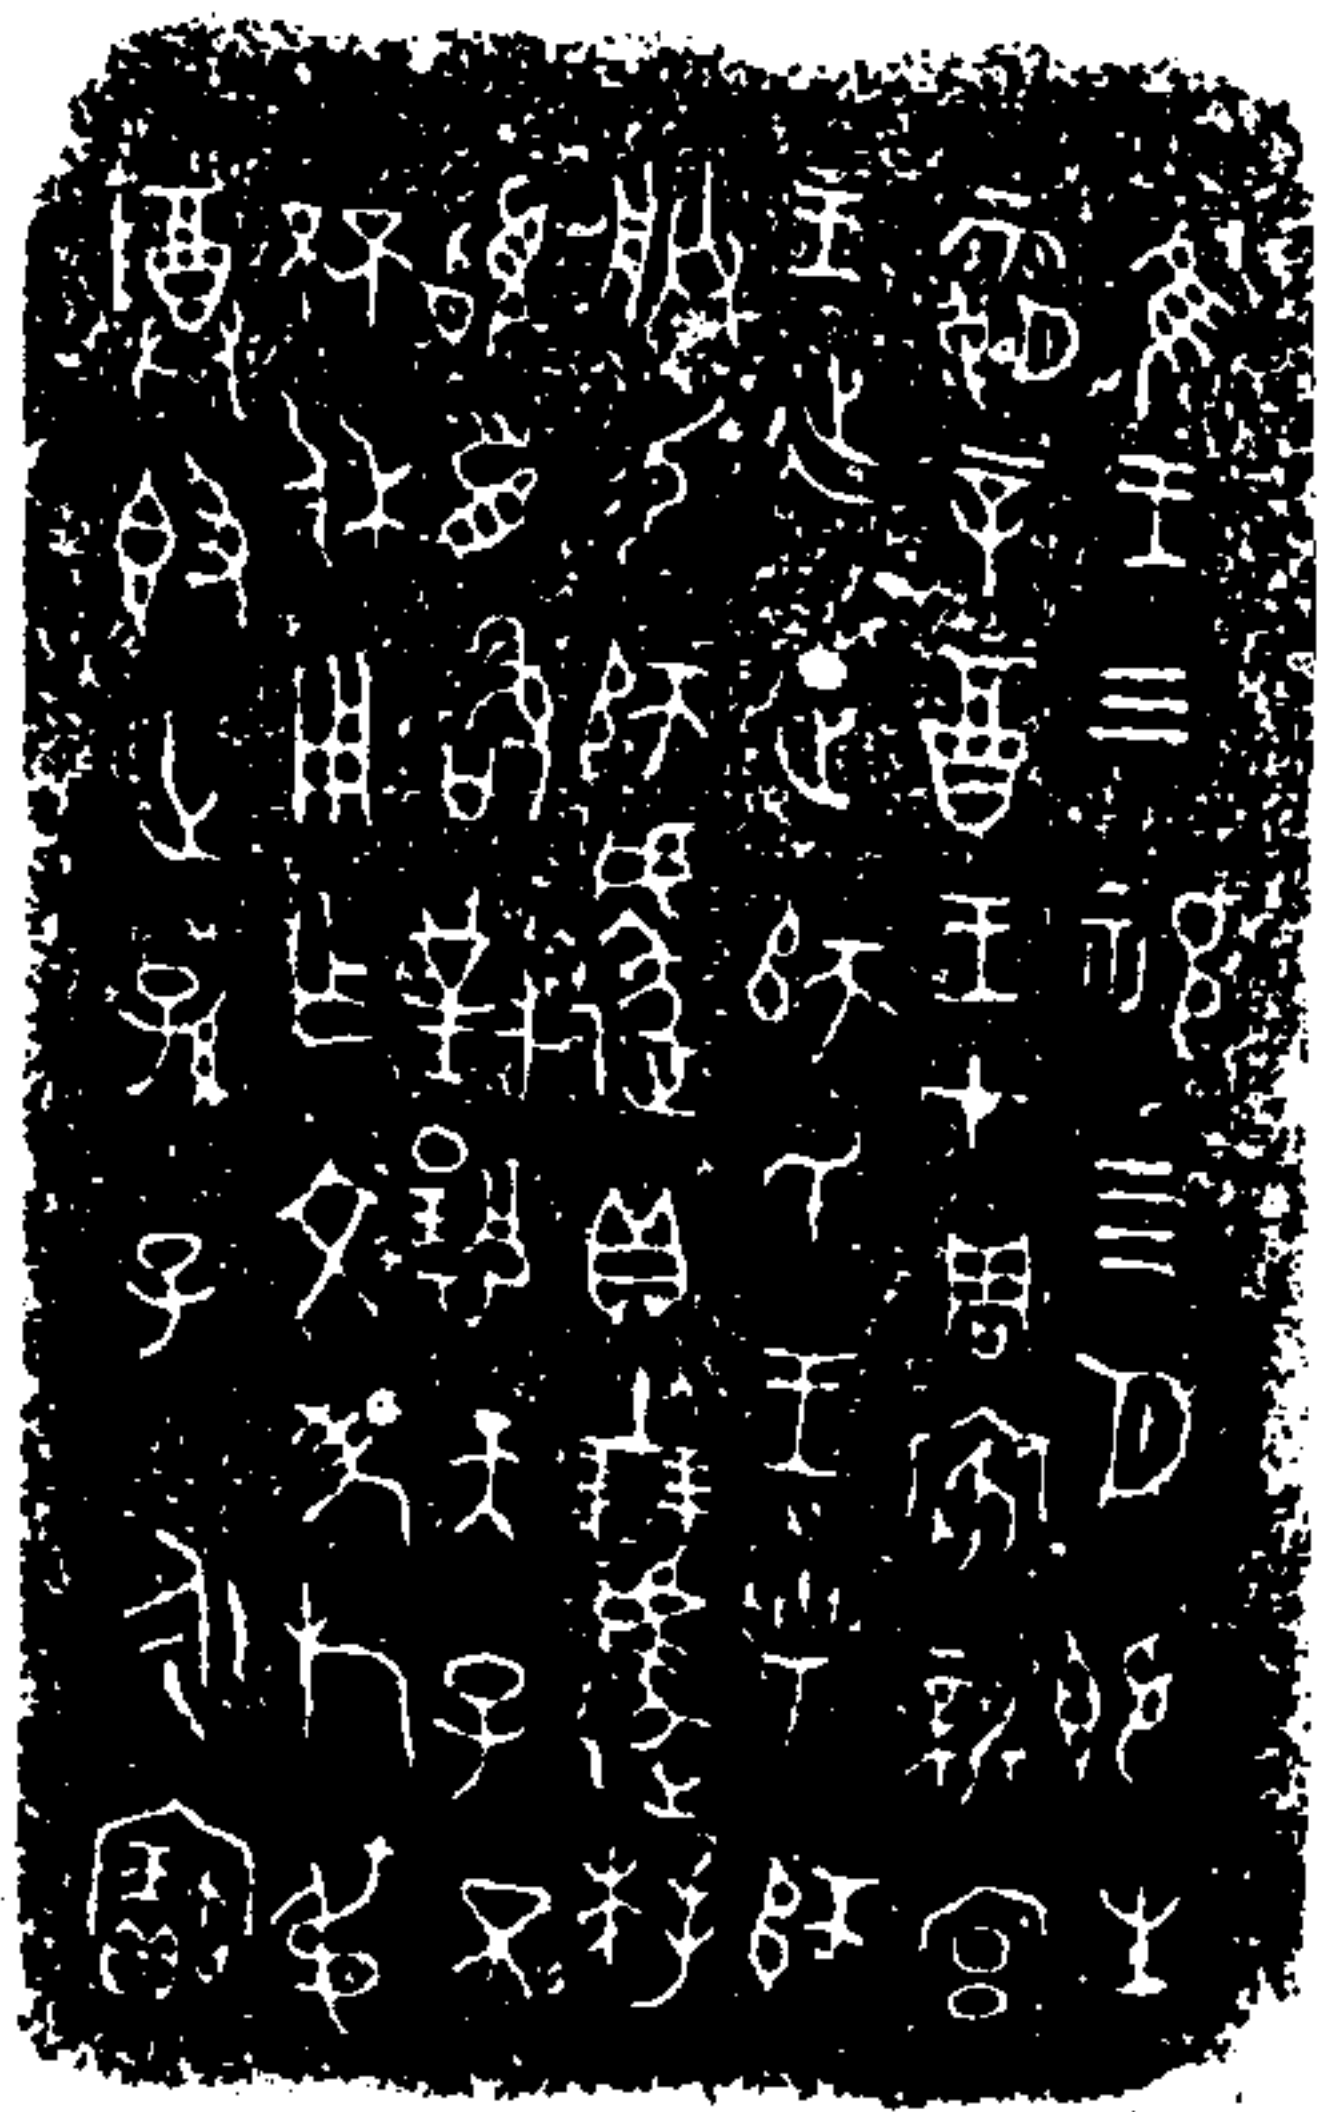 隹王三祀四月既生
霸辛酉王才周客新宮
王𢓊正師氏王乎師
朕易師遽貝十朋遽𢷎
𩒨首敢對𩁹天子不
㔻休用乍文考旄弔
𬯚𣪘世孫子永寶